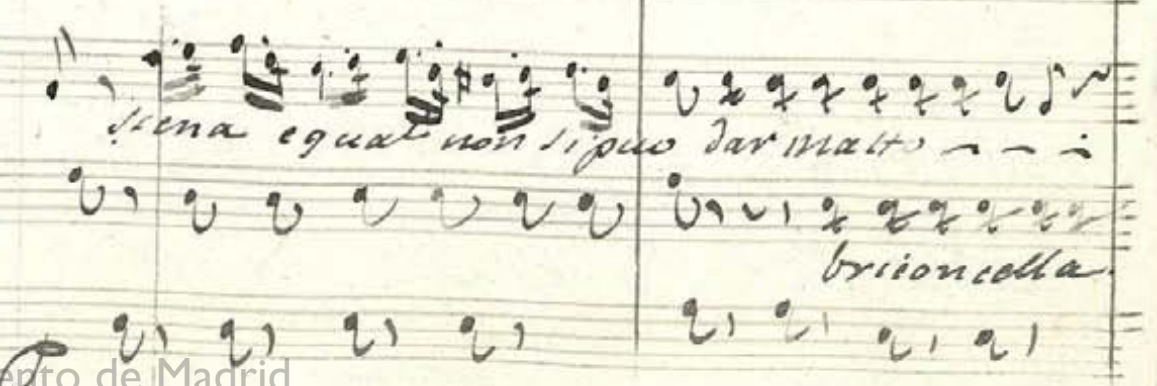 scena equal non si puo dar matto
briconcella
ento de Madrid